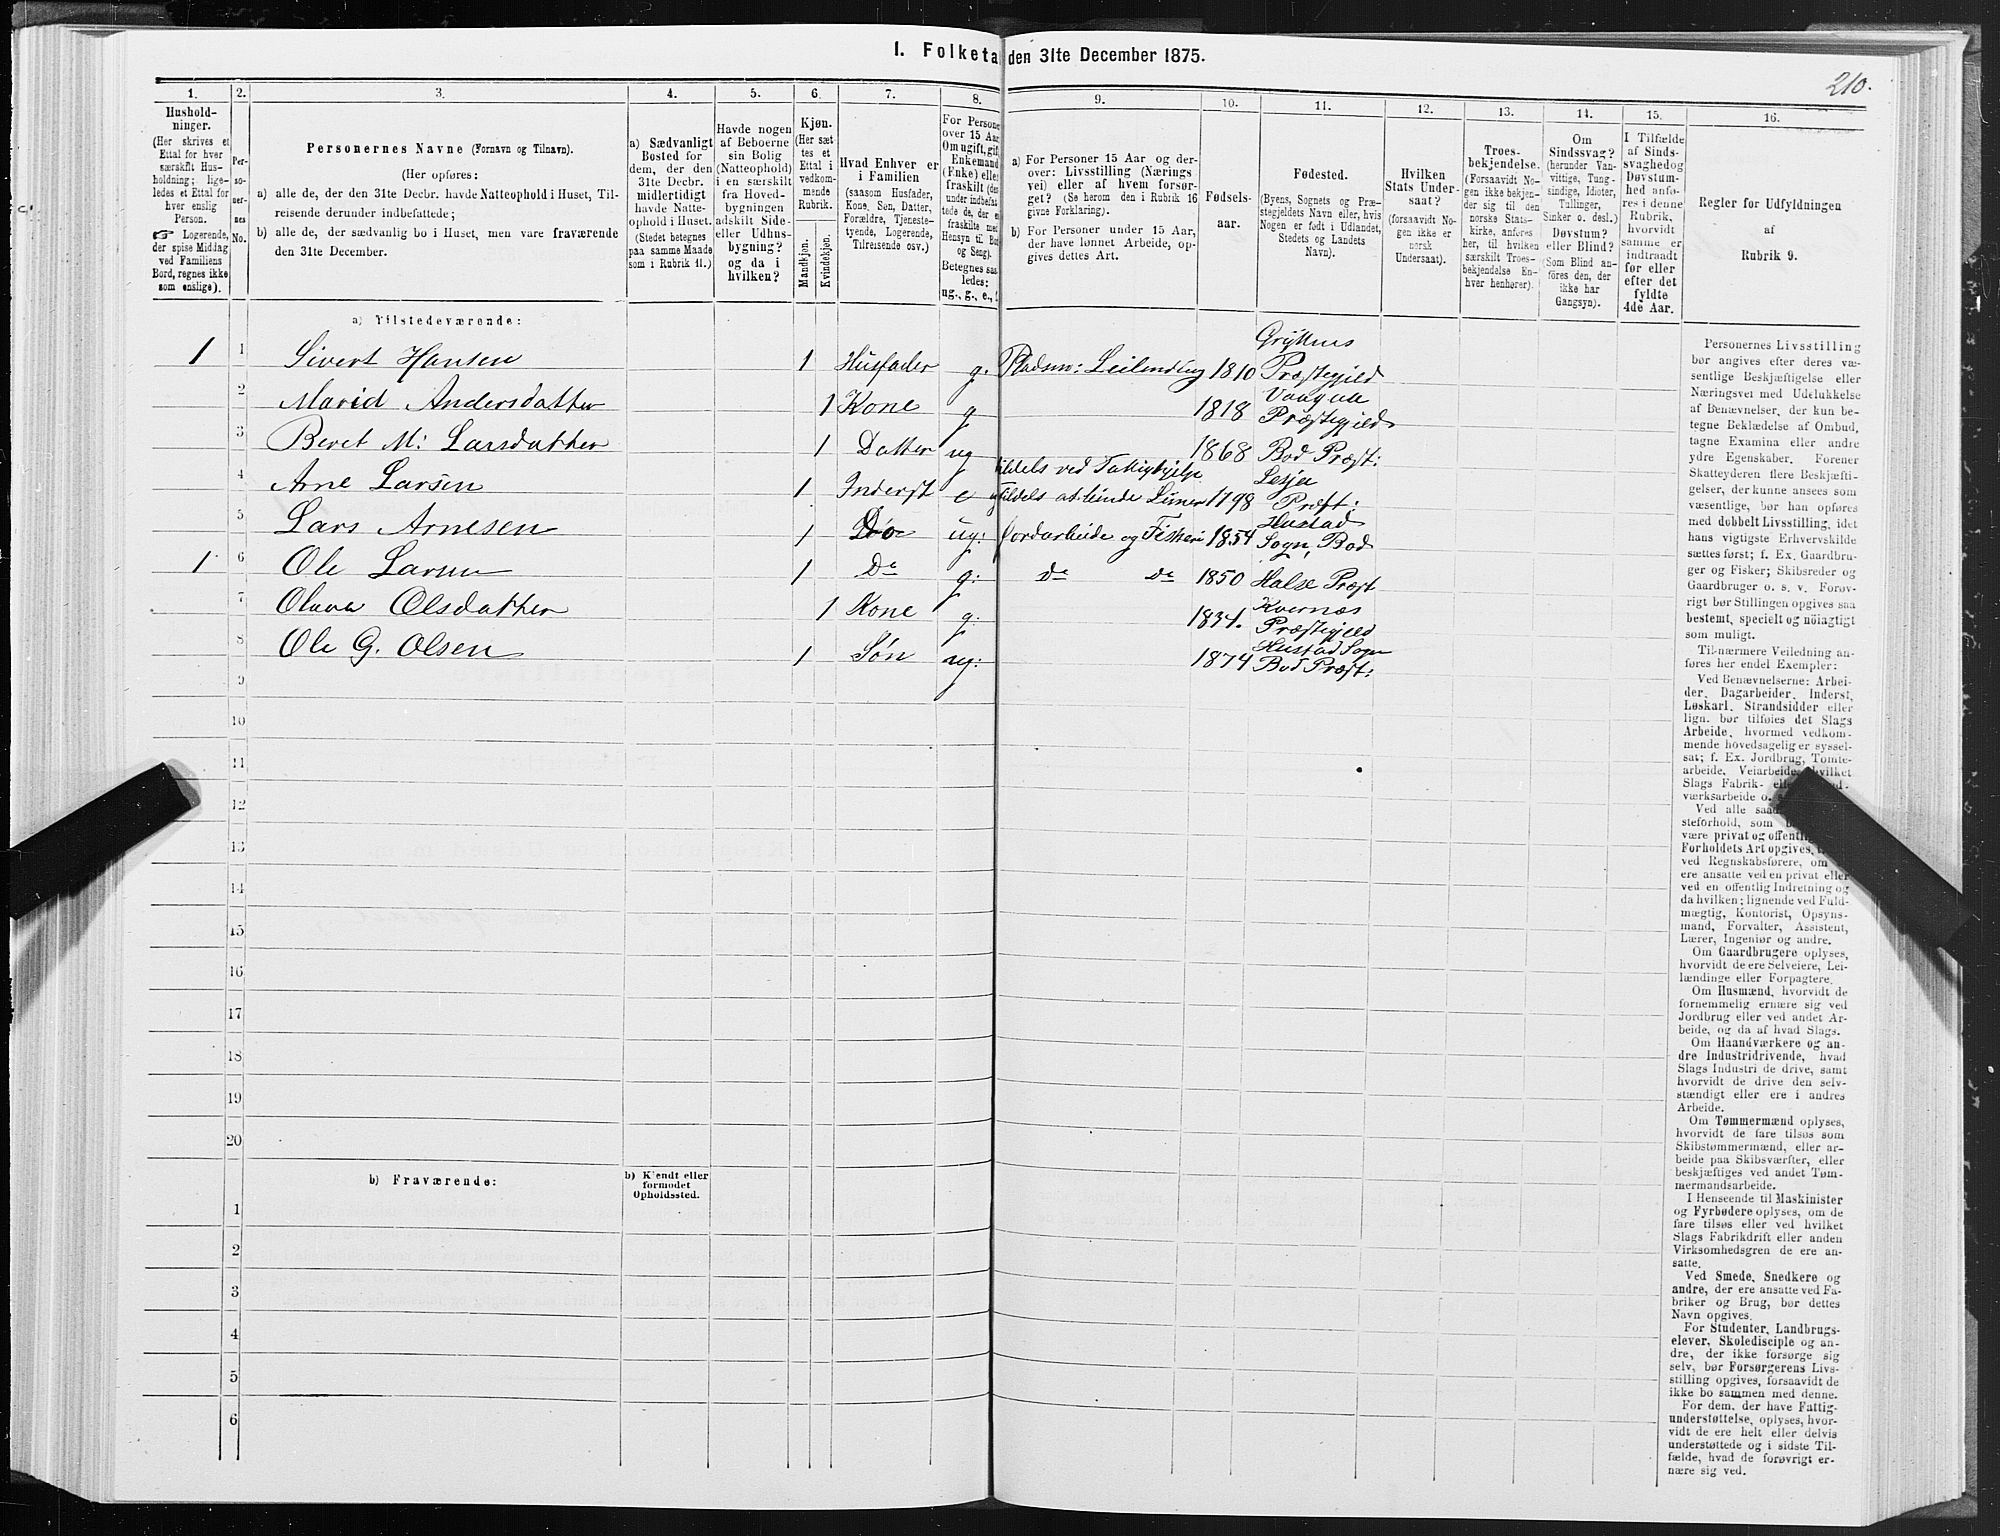 I. Folketa
den 31te December 1875.
210.
1.
Hushold-
ninger.
(Her skrives et
Ettal for hver
særskilt Hus-
holdning; lige-
ledes et Ettal for
hver enslig
Person.
☞ Logerende,
der spise Middag
ved Familiens
Bord, regnes ikke
som enslige).
2.
Per-
so-
ner-
nes
No.
3.
Personernes Navne (Fornavn og Tilnavn).
(Her opføres:
a) alle de, der den 31te Decbr. havde Natteophold i Huset, Til-
reisende derunder indbefattede;
b) alle de, der sædvanlig bo i Huset, men vare fraværende
den 31te December.
4.
a) Sædvanligt
Bosted for
dem, der den
31te Decbr.
midlertidigt
havde Natte-
ophold i Huset.
(Stedet betegnes
paa samme Maade
som i Rubrik 11.)
5.
Havde nogen
af Beboerne
sin Bolig
(Natteophold)
i en særskilt
fra Hoved-
bygningen
adskilt Side-
eller Udhus-
bygning?
og da i
hvilken?
6.
Kjøn.
(Her sæt
tes et
Ettal i
vedkom-
mende
Rubrik.
Mandkjøn.
Kvindekjøn.
7.
Hvad Enhver er
i Familien
(saasom Husfader,
Kone, Søn, Datter,
Forældre, Tjeneste-
tyende, Logerende,
Tilreisende osv.)
8.
For Persone
over 15 Aar
Om ugift, gif
Enkemand
(Enke) elle
fraskilt (de
under indbefat
tede de, der e
fraskilte med
Hensyn til Bo
og Seng).
Betegnes saa
ledes:
ug., g., e.,
9.
a) For Personer 15 Aar og der-
over: Livsstilling (Nærings
vei) eller af hvem forsør-
get? (Se herom den i Rubrik 16
givne Forklaring).
b) For Personer under 15 Aar,
der have lønnet Arbeide, op-
gives dettes Art.
10.
Fødsels-
aar.
11.
Fødested.
(Byens, Sognets og Præ-
stegjeldets Navn eller, hvis
Nogen er født i Udlandet,
Stedets og Landets
Navn).
12.
Hvilken
Stats Under-
saat?
(forsaavidt No-
gen ikke er
norsk
Undersaat).
13.
Troes-
bekjendelse.
(Forsaavidt No-
gen ikke bekjen-
der sig til den
norske Stats-
kirke, anføres
her, til hvilken
særskilt Troes-
bekjendelse En-
hver henhører).
14.
Om
Sindssvag?
(herunder Van-
vittige, Tung-
sindige, Idioter,
Tullinger,
Sinker o. desl.)
Døvstum?
eller Blind?
(Som Blind an-
føres den, der
ikke har
Gangsyn).
15.
I Tilfælde
af Sinds-
svaghed og
Døvstum-
hed anfø-
res i denne
Rubrik,
hvorvidt
samme er
indtraadt
før eller
efter det
fyldte
4de Aar.
16.
Regler for Udfyldningen
af
Rubrik 9.
a) Tilstedeværende:
1 1 Sivert Hansen 1 Husfader g. Pladsm: Leilending 1810 Gryttens Præstegjeld
2 Marid Andersdatter 1 Kone g 1818 Vaagaa Præstegjeld
3 Beret M: Larsdatter 1 Datter ug 1868 Bod Præst:
4 Arne Larsen 1 Inderst e tildels ved Fattighjelp tildels at binde 1798 Lesja Præst:
5 Lars Arnesen 1 Do ug: Jordarbeide og Fiskeri 1854 Hustad Sogn, Bod
1 6 Ole Larsen 1 Do g: Do Do 1850 Halse Præst
7 Olava Olsdatter 1 Kone g. 1834. Kvernæs Præstegjeld
8 Ole G. Olsen 1 Søn ug: 1874 Hustad Sogn Bod Præst:
9
10
11
12
13
14
15
16
17
18
19
20
b) Fraværende:
b) Kjendt eller
formodet
Opholdssted.
1
2
3
4
5
6
Personernes Livsstilling
bør angives efter deres væ-
sentlige Beskjæftigelse eller
Næringsvei med Udelukkelse
af Benævnelser, der kun be-
tegne Beklædelse af Ombud,
tagne Examina eller andre
ydre Egenskaber. Forener
Skatteyderen flere Beskjæfti-
gelser, der kunne ansees som
væsentlige, bør han opføres
med dobbelt Livsstilling, idet
hans vigtigste Erhvervskilde
sættes først; f. Ex. Gaardbru-
ger og Fisker; Skibsreder og
Gaardbruger o. s. v. Forøv-
rigt bør Stillingen opgives saa
bestemt, specielt og nöiagtigt
som muligt.
Til nærmere Veiledning an-
føres her endel Exempler:
Ved Benævnelserne: Arbei-
der, Dagarbeider, Inderst,
Løskarl, Strandsidder eller
lign. bør tilføies det Slags
Arbeide, hvormed vedkom-
mende hovedsagelig er syssel-
sat; f. Ex. Jordbrug, Tomte-
arbeide, Veiarbeide, hvilket
Slags Fabrik- el
værksarbeide o.
Ved alle saad
steforhold, som
være privat og offent
Forholdets Art opgives,
ved Regnskabsførere, om
ere ansatte ved en privat eller
ved en offentlig Indretning og
da hvilken; lignende ved Fuld-
mægtig, Kontorist, Opsyns-
mand, Forvalter, Assistent,
Lærer, Ingeniør og andre.
Om Gaardbrugere oplyses,
hvorvidt de ere Selveiere, Lei-
lændinge eller Forpagtere.
Om Husmænd, hvorvidt de
fornemmelig ernære sig ved
Jordbrug eller ved andet Ar-
beide, og da af hvad Slags.
Om Haandværkere og an-
dre Industridrivende, hvad
Slags Industri de drive, samt
hvorvidt de drive den selv-
stændigt eller ere i andres
Arbeide.
Om Tømmermænd oplyses,
hvorvidt de fare tilsøs som
Skibstømmermænd, eller ar-
beide paa Skibsværfter, eller
beskjæftiges ved andet Tøm-
mermandsarbeide.
I Henseende til Maskinister
og Fyrbødere oplyses, om de
fare tilsøs eller ved hvilket
Slags Fabrikdrift eller anden
Virksomhedsgren de ere an-
satte.
Ved Smede, Snedkere og
andre, der ere ansatte ved Fa-
briker og Brug, bør dettes
Navn opgives.
For Studenter, Landbrugs-
elever, Skoledisciple og an-
dre, der ikke forsørge sig
selv, bør Forsørgerens Livs-
stilling opgives, forsaavidt de
ikke bo sammen med denne.
For dem, der have Fattig-
understøttelse, oplyses, hvor-
vidt de ere helt eller delvis
understøttede og i sidste Til-
fælde, hvad de forøvrigt er-
nære sig ved.